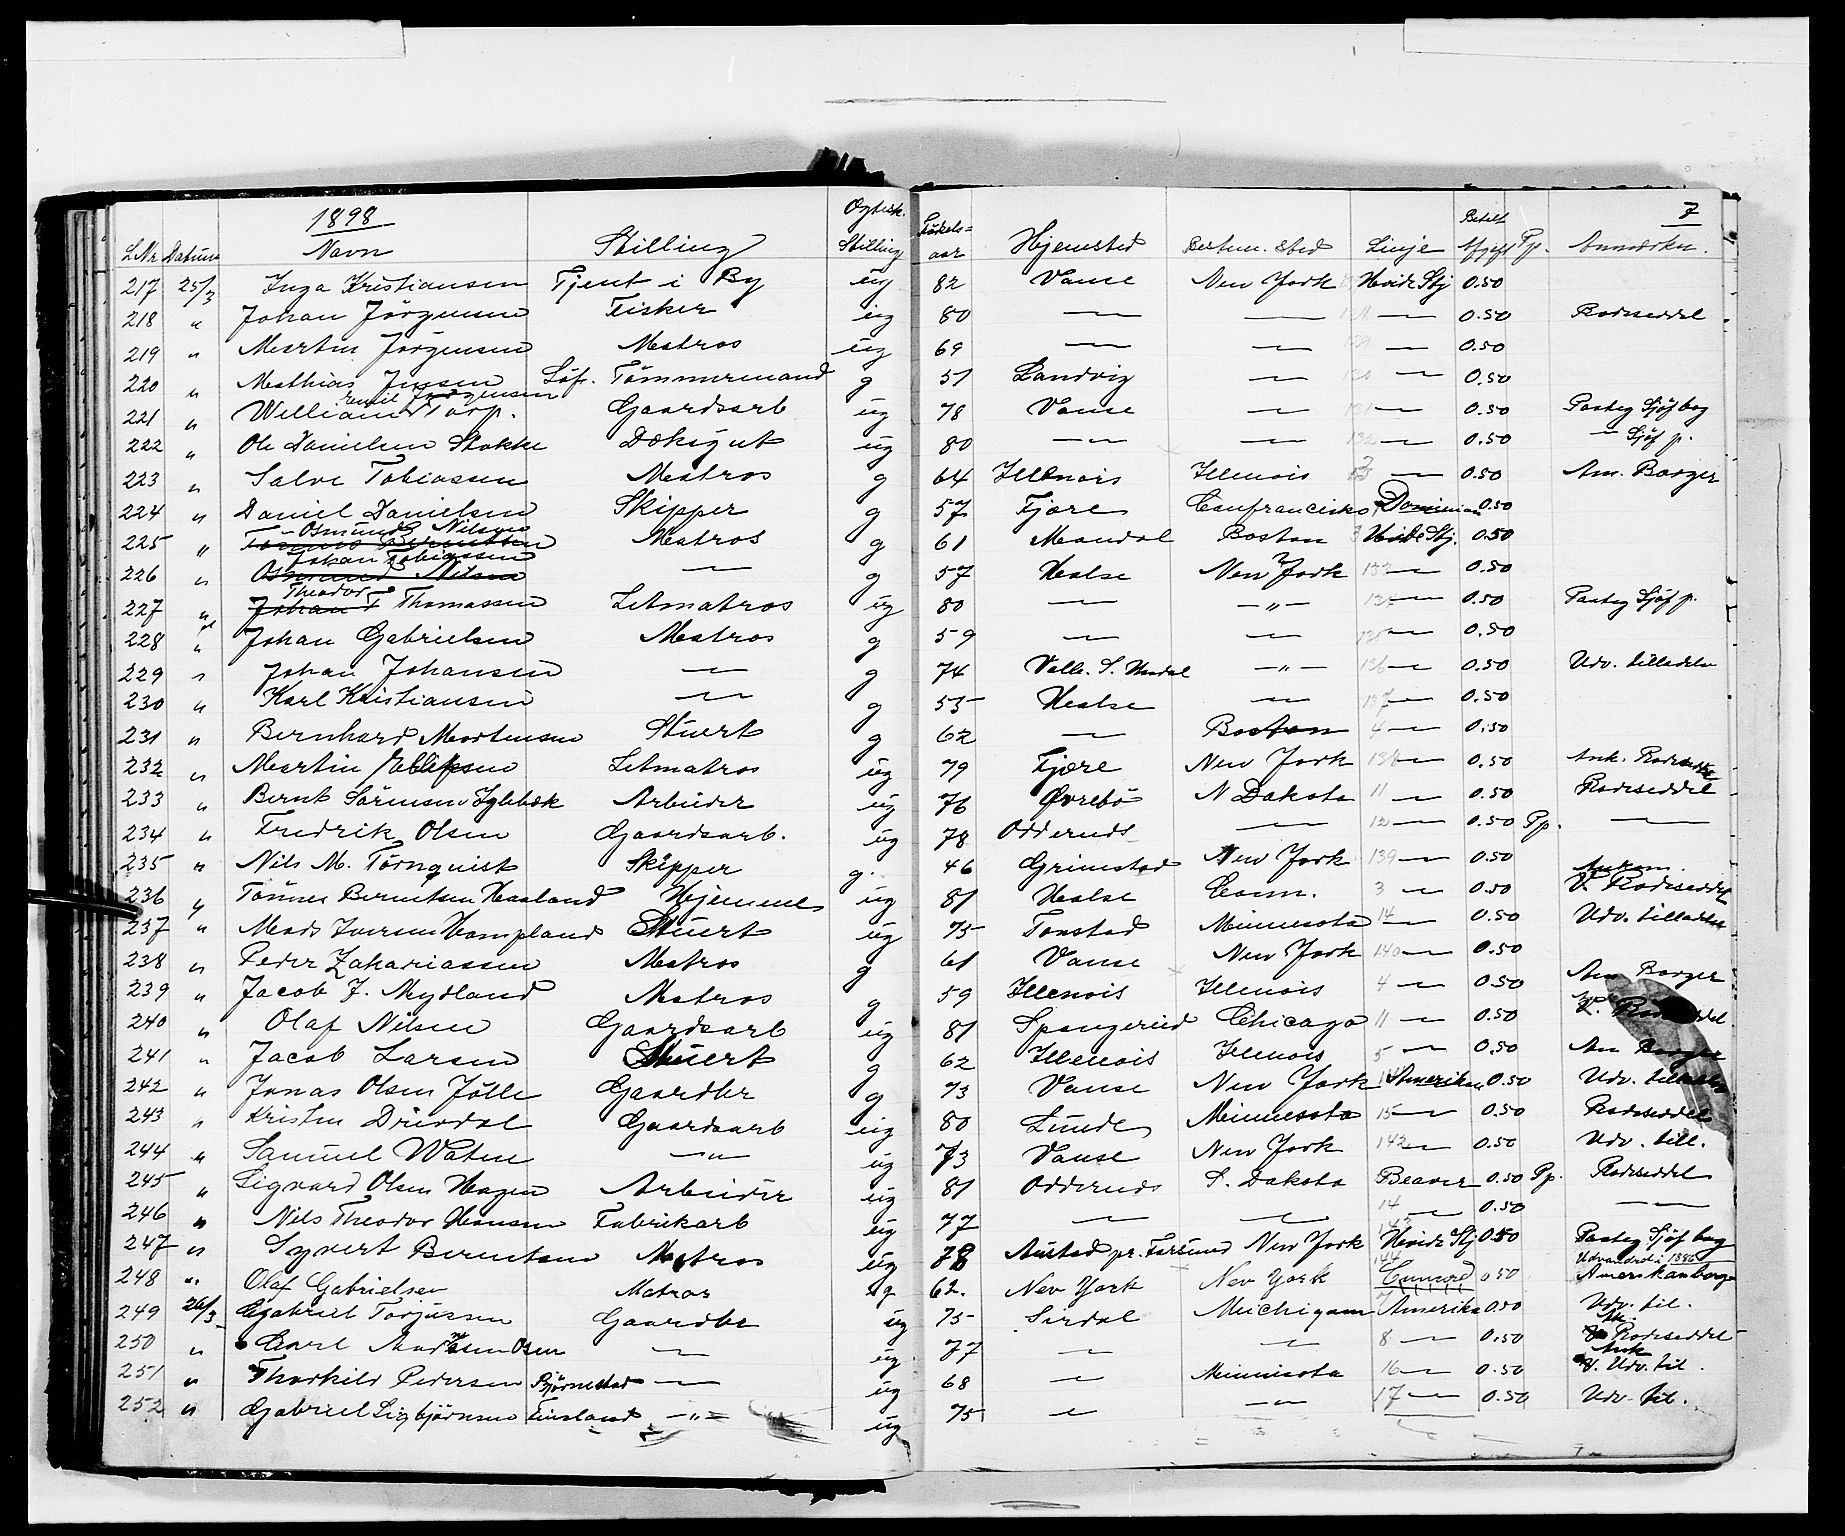 1898 Ogtesk. Betalt 7
LNr Datum Navn Stilling Stilling Födsels-aar Hjemsted Bestem. Sted Linje Afgift Pp. Anmærkn.
217 25/3 Inga Kristiansen Tjent i By ug 82 Vanse New York Hvide Stj 0.50
218 " Johan Jörgensen Fisker ug 80 — — — 0.50 Rodeseddel
219 " Martin Jörgensen Matros ug 69 — — — 0.50
220 " Mathias Jensen Söf. Tömmermand g 51 Landvig — — 0.50
221 " William Emil Jörgensen Torp. Gaardsarb ug 78 Vanse — — 0.50 Pasteg Sjöf bog
222 " Ole Danielsen Stokke Dæksgut ug 80 — — — 0.50 — Sjöf p.
223 " Salve Tobiassen Matros g 64 Illenois Illenois — 0.50 Am. Borger
224 " Daniel Danielsen Skipper g 57 Fjære Sanfrancisko Dominion 0.50
225 " Tönnes Berentsen Osmund Nilsen Matros g 61 Mandal Boston 3 Hvide Stj. 0.50
226 " Osmund Nilsen Johan Tobiassen — g 57 Halse New York — 0.50
227 " Johan T Theodor Thomassen Letmatros ug 80 — —"— — 0.50 Pasteg Sjöf p.
228 " Johan Gabrielsen Matros g 59 — — — 0.50
229 " Johan Johansen — g 74 Valle. S. Undal —"— 136 — 0.50 Udv. tilladelse
230 " Karl Kristiansen — g 55 Halse — 137 — 0.50
231 " Bernhard Mortensen Stuert g 62 — Boston 4 — 0.50
232 " Martin Ellefsen Letmatros ug 79 Fjære New York 138 — 0.50 Ank. Rodeseddel
233 " Bernt Sörensen Iglebæk Arbeider ug 76 Øvrebö N Dakota 11 — 0.50 Rodeseddel
234 " Fredrik Olsen Gaardsarb. ug 78 Oddernæs — 12 — 0.50 Pp. —
235 " Nils M. Törnquist Skipper g. 46 Grimstad New York 139 — 0.50
236 " Tönnes Berentsen Haaland Hjemme ug 81 Halse Conn. 3 — 0.50 V. Rodeseddel
237 " Mads Iversen Hompland Stuert ug 75 Tonstad Minnesota 14 — 0.50 Udv. tilladelse
238 " Peder Zakariassen Matros g 61 Vanse New York 140 — 0.50
239 " Jacob J. Mydland Matros g 59 Illenois Illenois 4 — 0.50 Am Borger
240 " Olaf Nilsen Gaardsarb ug 81 Spangereid Chicago 11 — 0.50 V. Rodeseddel
241 " Jacob Larsen Stuert g 62 Illenois Illenois 5 — 0.50 Am Borger
242 " Jonas Olsen Jölle Gaardbr g 73 Vanse New York Amerikan 0.50 Udv. tilladelse
243 " Kristen Drivdal Gaardsarb ug 80 Lunde Minnesota 15 — 0.50 Rodeseddel
244 " Samuel Watne —"— ug 73 Vanse New York 142 — 0.50 Udv. till.
245 " Sigvard Olsen Hagen Arbeider ug 81 Oddernæs S. Dakota Beaver 0.50 Pp. Rodeseddel
246 " Nils Theodor Hansen Fabrikarb ug 77 — — 14 — 0.50 —
247 " Sigvert Berentsen Matros ug 78 Austad pr. Farsund New York 143 Hvide Stj 0.50 Pasteg Sjöf bog
248 " Olaf Gabrielsen Matros ug 62. New York New York 144 Cunard 0.50 Udvandret i 1886 Amerikanborger
249 26/3 Gabriel Torjusen Gaardbr ug 75 Sirdal Michigan Amerika 0.50 Udv. til.
250 " Carl Andersen Osen — ug 77 — — 8 — 0.50 Ank. Rodeseddel
251 " Thorkild Pedersen Bjørnestad — ug 68 — Minnisota 16 — 0.50 Ank V. Udv. til.
252 " Gabriel Sigbjörnsen Finsland —"— ug 75 — —"— 17 — 0.50 Udv. til.